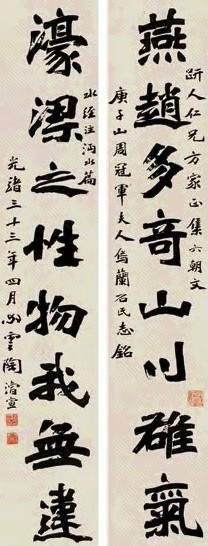 趼人仁兄方家正集六朝文
燕趙多奇山川雄氣
庾子山周冠軍夫人烏蘭石氏志銘
濠梁之性物我無違
水經注沔水篇
光緒三十三年四月心雲陶濬宣